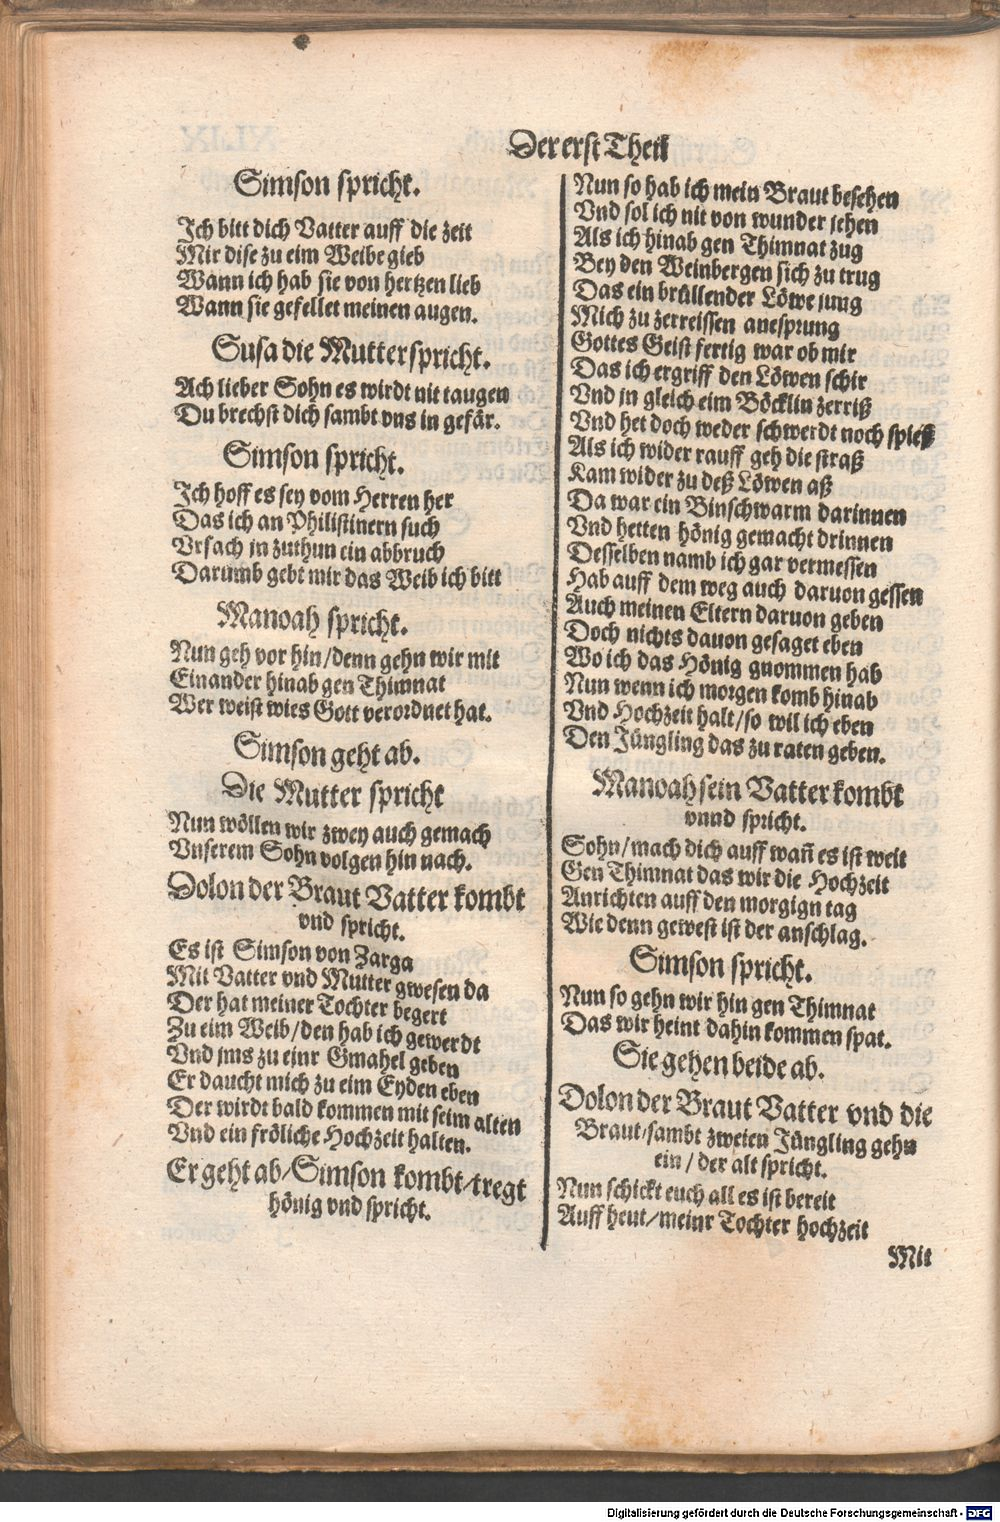 Der erst Theil
Simson spricht.
Ich bitt dich Vatter auff die zeit
Mir dise zu eim Weibe gieb
Wann ich hab sie von hertzen lieb
Wann sie gefellet meinen augen.
Susa die Mutter spricht.
Ach lieber Sohn es wirdt nit taugen
Du brechst dich sambt vns in gefär.
Simson spricht.
Ich hoff es sey vom Herren her
Das ich an Philistinern such
Vrsach jn zuthun ein abbruch
Darumb gebt mir das Weib ich bitt
Manoah spricht.
Nun geh vor hin/denn gehn wir mit
Einander hinab gen Thimnat
Wer weist wies Gott verordnet hat.
Simson geht ab.
Die Mutter spricht
Nun wöllen wir zwey auch gemach
Vnserem Sohn volgen hin nach.
Dolon der Braut Vatter kombt
vnd spricht.
Es ist Simson von Zarga
Mit Vatter vnd Mutter gwesen da
Der hat meiner Tochter begert
Zu eim Weib/den hab ich gewerdt
Vnd jms zu einr Gmahel geben
Er daucht mich zu eim Eyden eben
Der wirdt bald kommen mit seim alten
Vnd ein fröliche Hochzeit halten.
Er geht ab/Simson kombt/tregt
hönig vnd spricht.
Nun so hab ich mein Braut besehen
Vnd sol ich nit von wunder jehen
Als ich hinab gen Thimnat zug
Bey den Weinbergen sich zu trug
Das ein brüllender Löwe jung
Mich zu zerreissen anesprung
Gottes Geist fertig war ob mir
Das ich ergriff den Löwen schir
Vnd jn gleich eim Böcklin zerriß
Vnd het doch weder schwerdt noch spieß
Als ich wider rauff geh die straß
Kam wider zu deß Löwen aß
Da war ein Binschwarm darinnen
Vnd hetten hönig gemacht drinnen
Desselben namb ich gar vermessen
Hab auff dem weg auch daruon gessen
Auch meinen Eltern daruon geben
Doch nichts dauon gesaget eben
Wo ich das Hönig gnommen hab
Nun wenn ich morgen komb hinab
Vnd Hochzeit halt/so wil ich eben
Den Jüngling das zu raten geben.
Manoah sein Vatter kombt
vnnd spricht.
Sohn/mach dich auff wañ es ist weit
Gen Thimnat das wir die Hochzeit
Anrichten auff den morgign tag
Wie denn gewest ist der anschlag.
Simson spricht.
Nun so gehn wir hin gen Thimnat
Das wir heint dahin kommen spat.
Sie gehen beide ab.
Dolon der Braut Vatter vnd die
Braut/sambt zweien Jüngling gehn
ein/der alt spricht.
Nun schickt euch all es ist bereit
Auff heut/meinr Tochter hochzeit
Mit
Digitalisierung gefördert durch die Deutsche Forschungsgemeinschaft - DFG